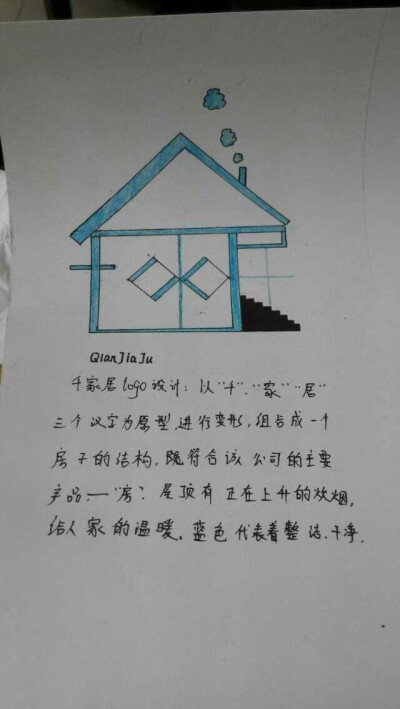 QianJiaJu
千家居logo设计：以“千”.“家”“居”
三个汉字为原型,进行变形,组合成一个
房子的结构,既符合该公司的主要
产品——“房”. 屋顶有正在上升的炊烟,
给人家的温暖. 蓝色代表着整洁.干净.